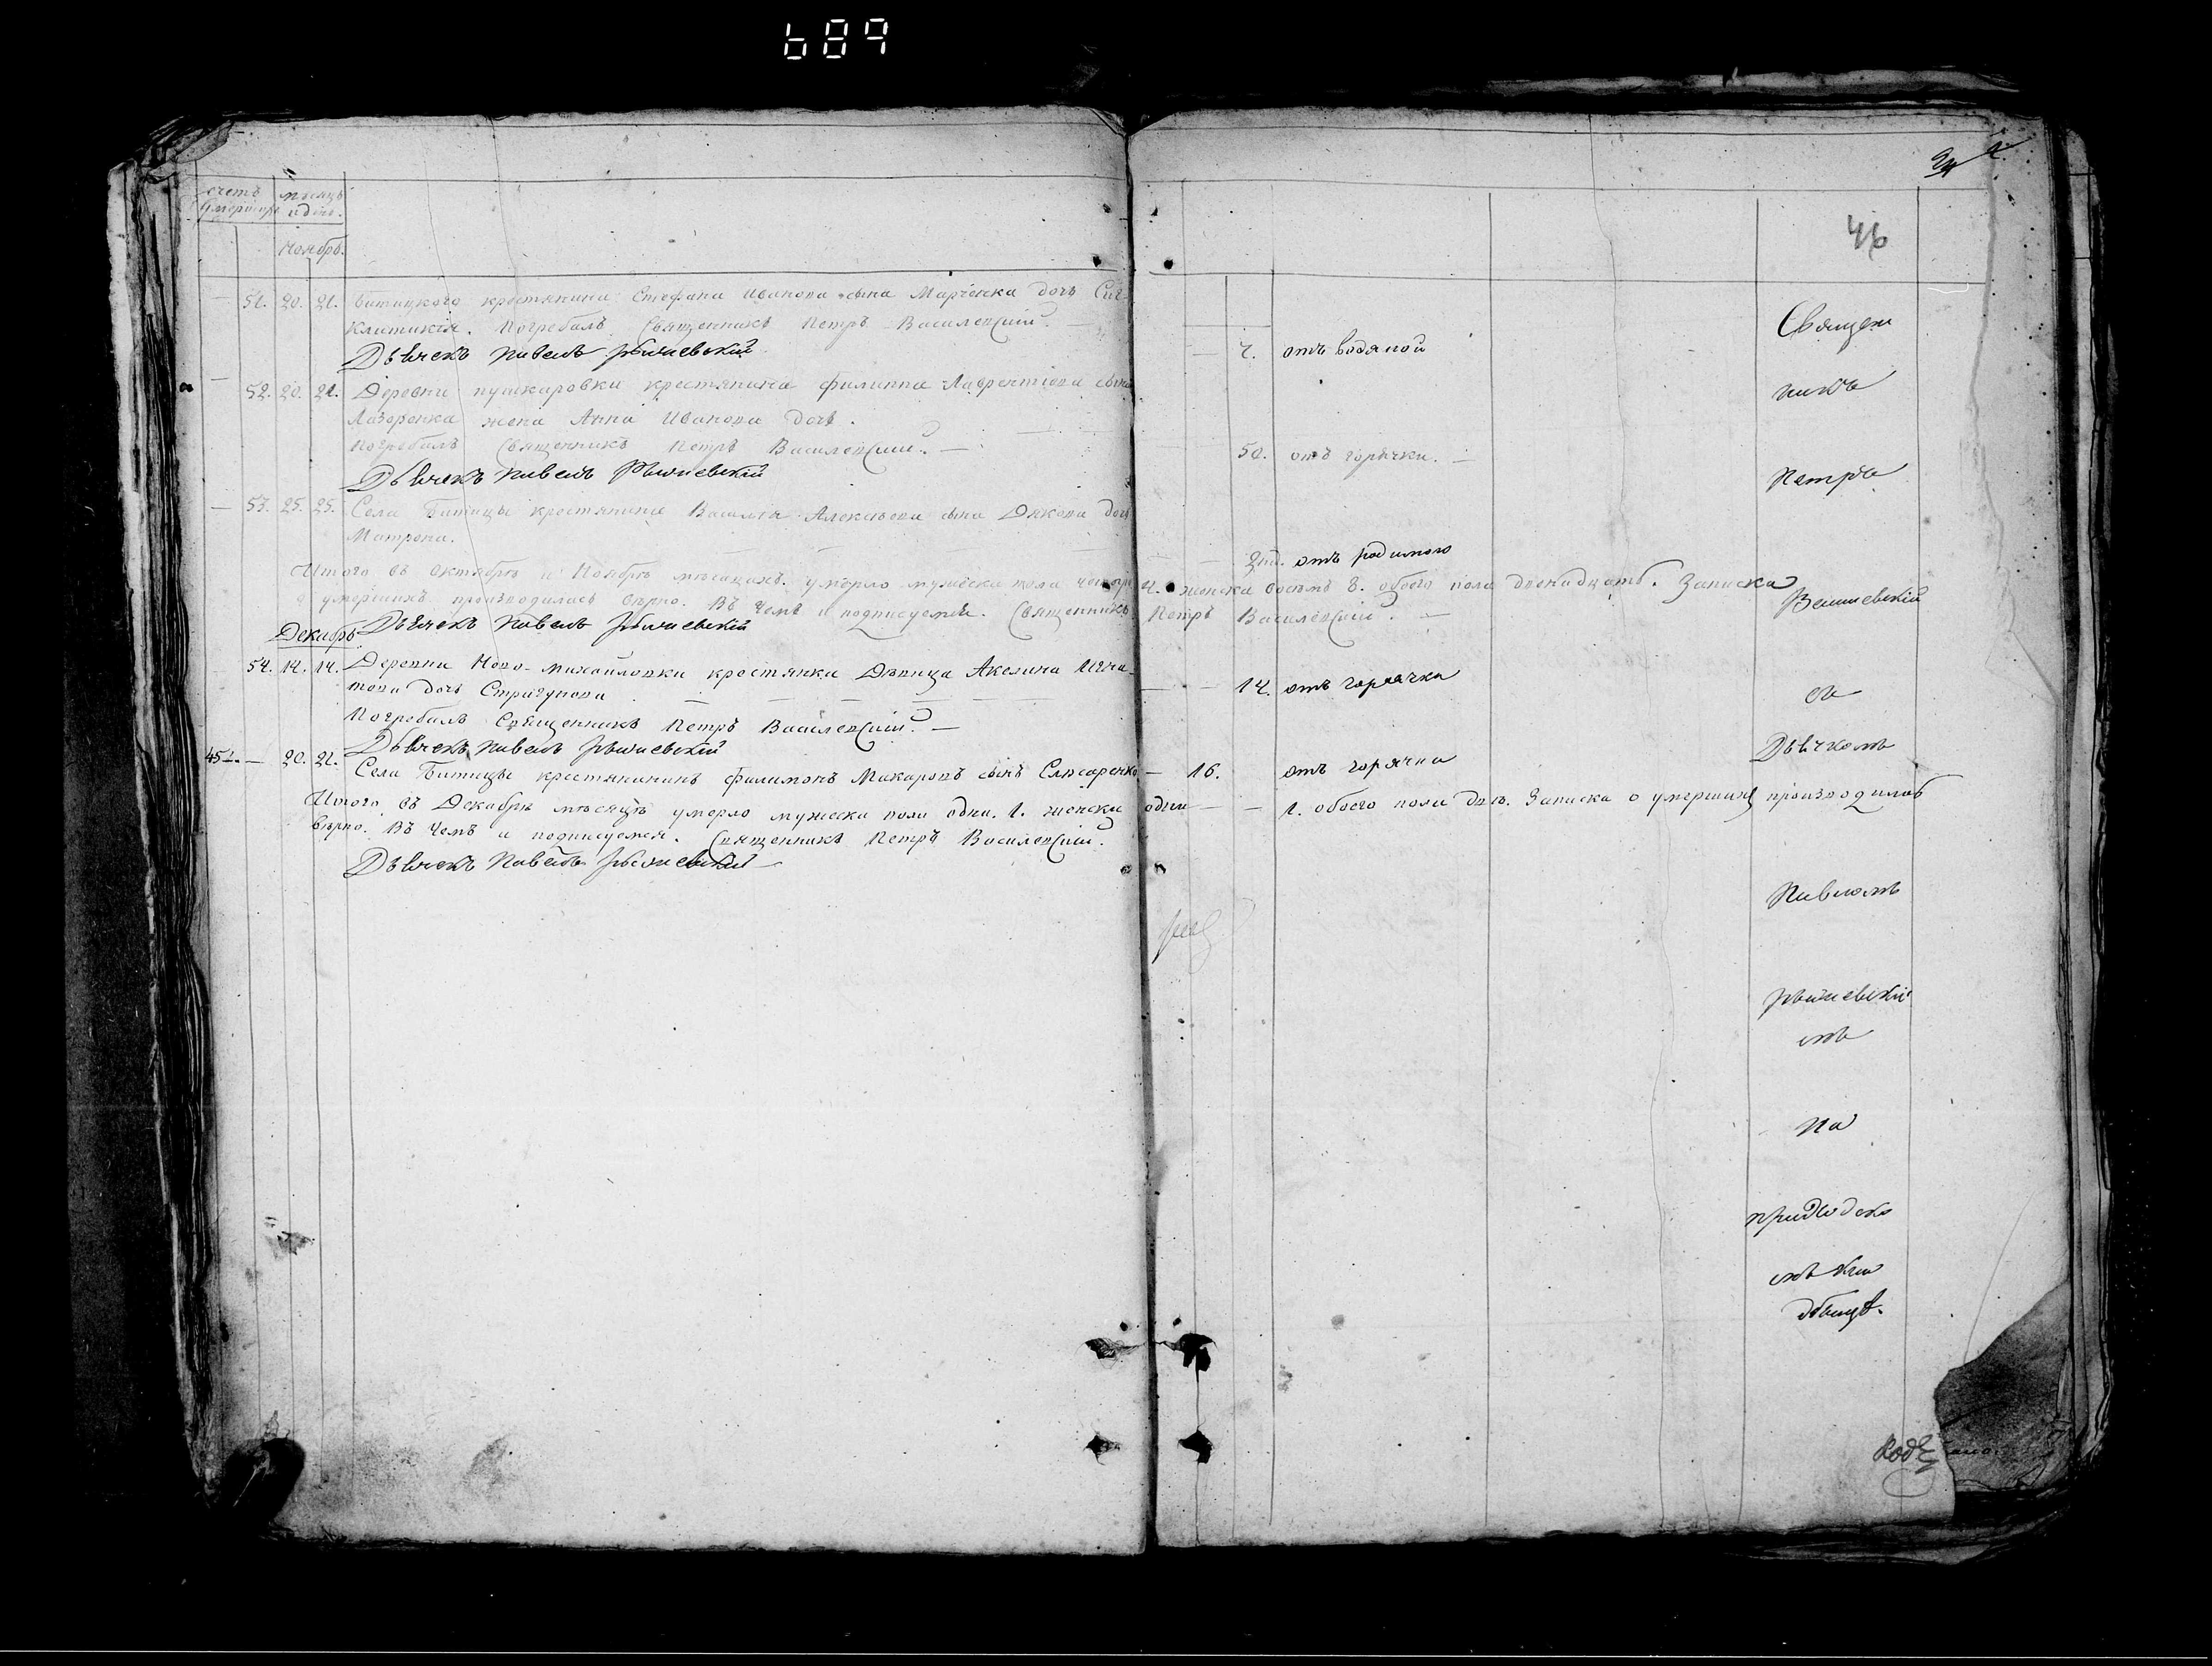 689
46
счетъ мѣсяцъ
умершихъ и день.
Ноябрь.
51. 20. 21. Битицкого крестянина Стефана Иванова сына Марченка дочь Син-
клитикія. Погребалъ Священникъ Петръ Василевскій. —
4. отъ водяной
Дьячекъ Павелъ Рыжиевскій
52. 20. 21. Деревни пушкаровки крестянина Филиппа Лаврентіева сына
Лазоренка жена Анна Иванова дочь.
Погребалъ Священникъ Петръ Василевскій. —
50. отъ горячки. —
Дьячекъ Павелъ Рыжиевскій
53. 25. 25. Села Битицы крестянина Василія Алексѣева сына Дякова дочь
Матрона.
2нд. отъ родимого
Итого въ Октябрѣ и Ноябрѣ мѣсяцахъ умерло мужеска пола четыре 4. женска восемъ 8. обоего пола двенадцать. Записка
о умершихъ производилась вѣрно. Въ чемъ и подписуемся. Священникъ Петръ Василевскій. —
Дьячекъ Павелъ Рыжиевскій
Декабрь
54. 14. 14. Деревни Ново-михайловки крестянка Дѣвица Акелина Игна-
това дочь Стригунова
14. отъ горячки
Погребалъ Священникъ Петръ Василевскій. —
Дьячекъ Павелъ Рыжиевскій
45. — 20. 21. Села Битицы крестянинъ Филимонъ Макаровъ сынъ Слюсаренко — 16. отъ горячки
Итого въ Декабрѣ мѣсяцѣ умерло мужеска пола одна. 1. женска одна — — 1. обоего пола двѣ. Записка о умершихъ производилась
вѣрно. Въ чемъ и подписуемся. Священникъ Петръ Василевскій.
Дьячекъ Павелъ Рыжиевскій
Священ
никъ
Петръ
Василевскій
съ
Дьячкомъ
Павломъ
Рыжиевскі
мъ
На
приходско
мъ